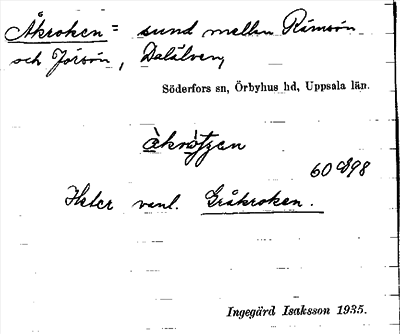 Åkroken = sund mellan Rämsön
och Jörsön, Dalälven,
Söderfors sn, Örbyhus hd, Uppsala län.
60 C 98
Heter vanl. Gråkroken.
Ingegärd Isaksson 1935.